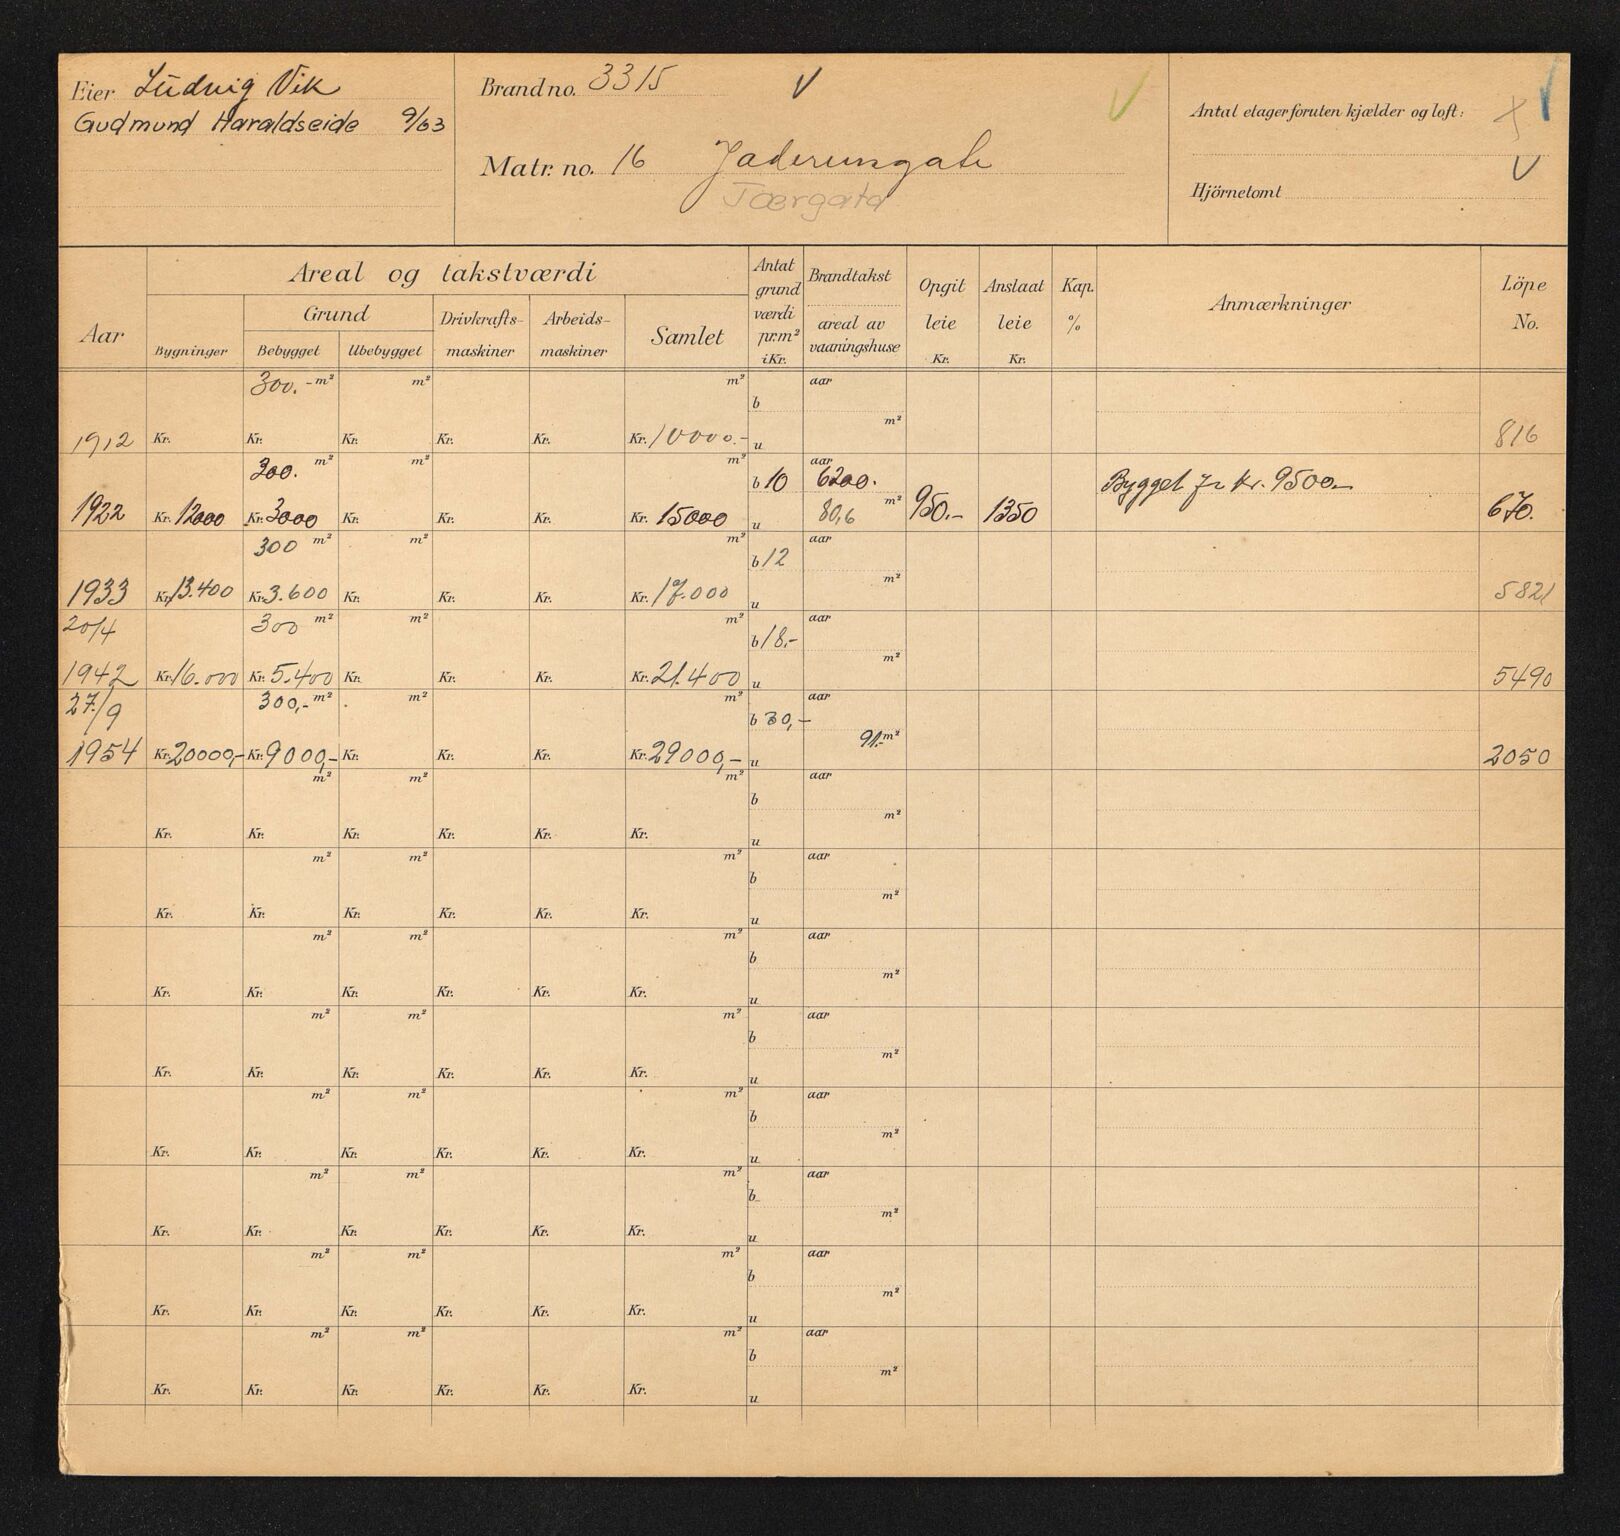 Eier Ludvig Vik
Gudmund Haraldseide 9/63
Brand no. 3315 V
Matr. no. 16 Jaderensgate
Tærgata
V
Antal etager foruten kjælder og loft: X V
Hjörnetomt V
Aar
Areal og takstværdi
Grund
Bygninger Bebygget Ubebygget
Drivkrafts-maskiner
Arbeids-maskiner
Samlet
Antat grundværdi pr.m² i Kr.
Brandtakst
areal av vaaningshuse
Opgit leie Kr.
Anslaat leie Kr.
Kap. %
Anmærkninger
Löpe No.
300.- m² m² m² b aar m²
1912 Kr. Kr. Kr. Kr. Kr. Kr. 10000.- u 816
300. m² m² m² b 10 aar 6200. Bygget for kr. 9500.-
1922 Kr. 12000 Kr. 3000 Kr. Kr. Kr. Kr. 15000 u 80,6 m² 950.- 1350 670.
300 m² m² m² b 12 aar m²
1933 Kr. 13.400 Kr. 3.600 Kr. Kr. Kr. Kr. 17.000 u 5821
20/4 300 m² m² m² b 18.- aar m²
1942 Kr. 16.000 Kr. 5.400 Kr. Kr. Kr. Kr. 21.400 u 5490
27./9 300,- m² m² m² b 30,- aar 91.- m²
1954 Kr. 20000,- Kr. 9000,- Kr. Kr. Kr. Kr. 29000,- u 2050
m² m² m² b aar m²
Kr. Kr. Kr. Kr. Kr. Kr. u
m² m² m² b aar m²
Kr. Kr. Kr. Kr. Kr. Kr. u
m² m² m² b aar m²
Kr. Kr. Kr. Kr. Kr. Kr. u
m² m² m² b aar m²
Kr. Kr. Kr. Kr. Kr. Kr. u
m² m² m² b aar m²
Kr. Kr. Kr. Kr. Kr. Kr. u
m² m² m² b aar m²
Kr. Kr. Kr. Kr. Kr. Kr. u
m² m² m² b aar m²
Kr. Kr. Kr. Kr. Kr. Kr. u
m² m² m² b aar m²
Kr. Kr. Kr. Kr. Kr. Kr. u